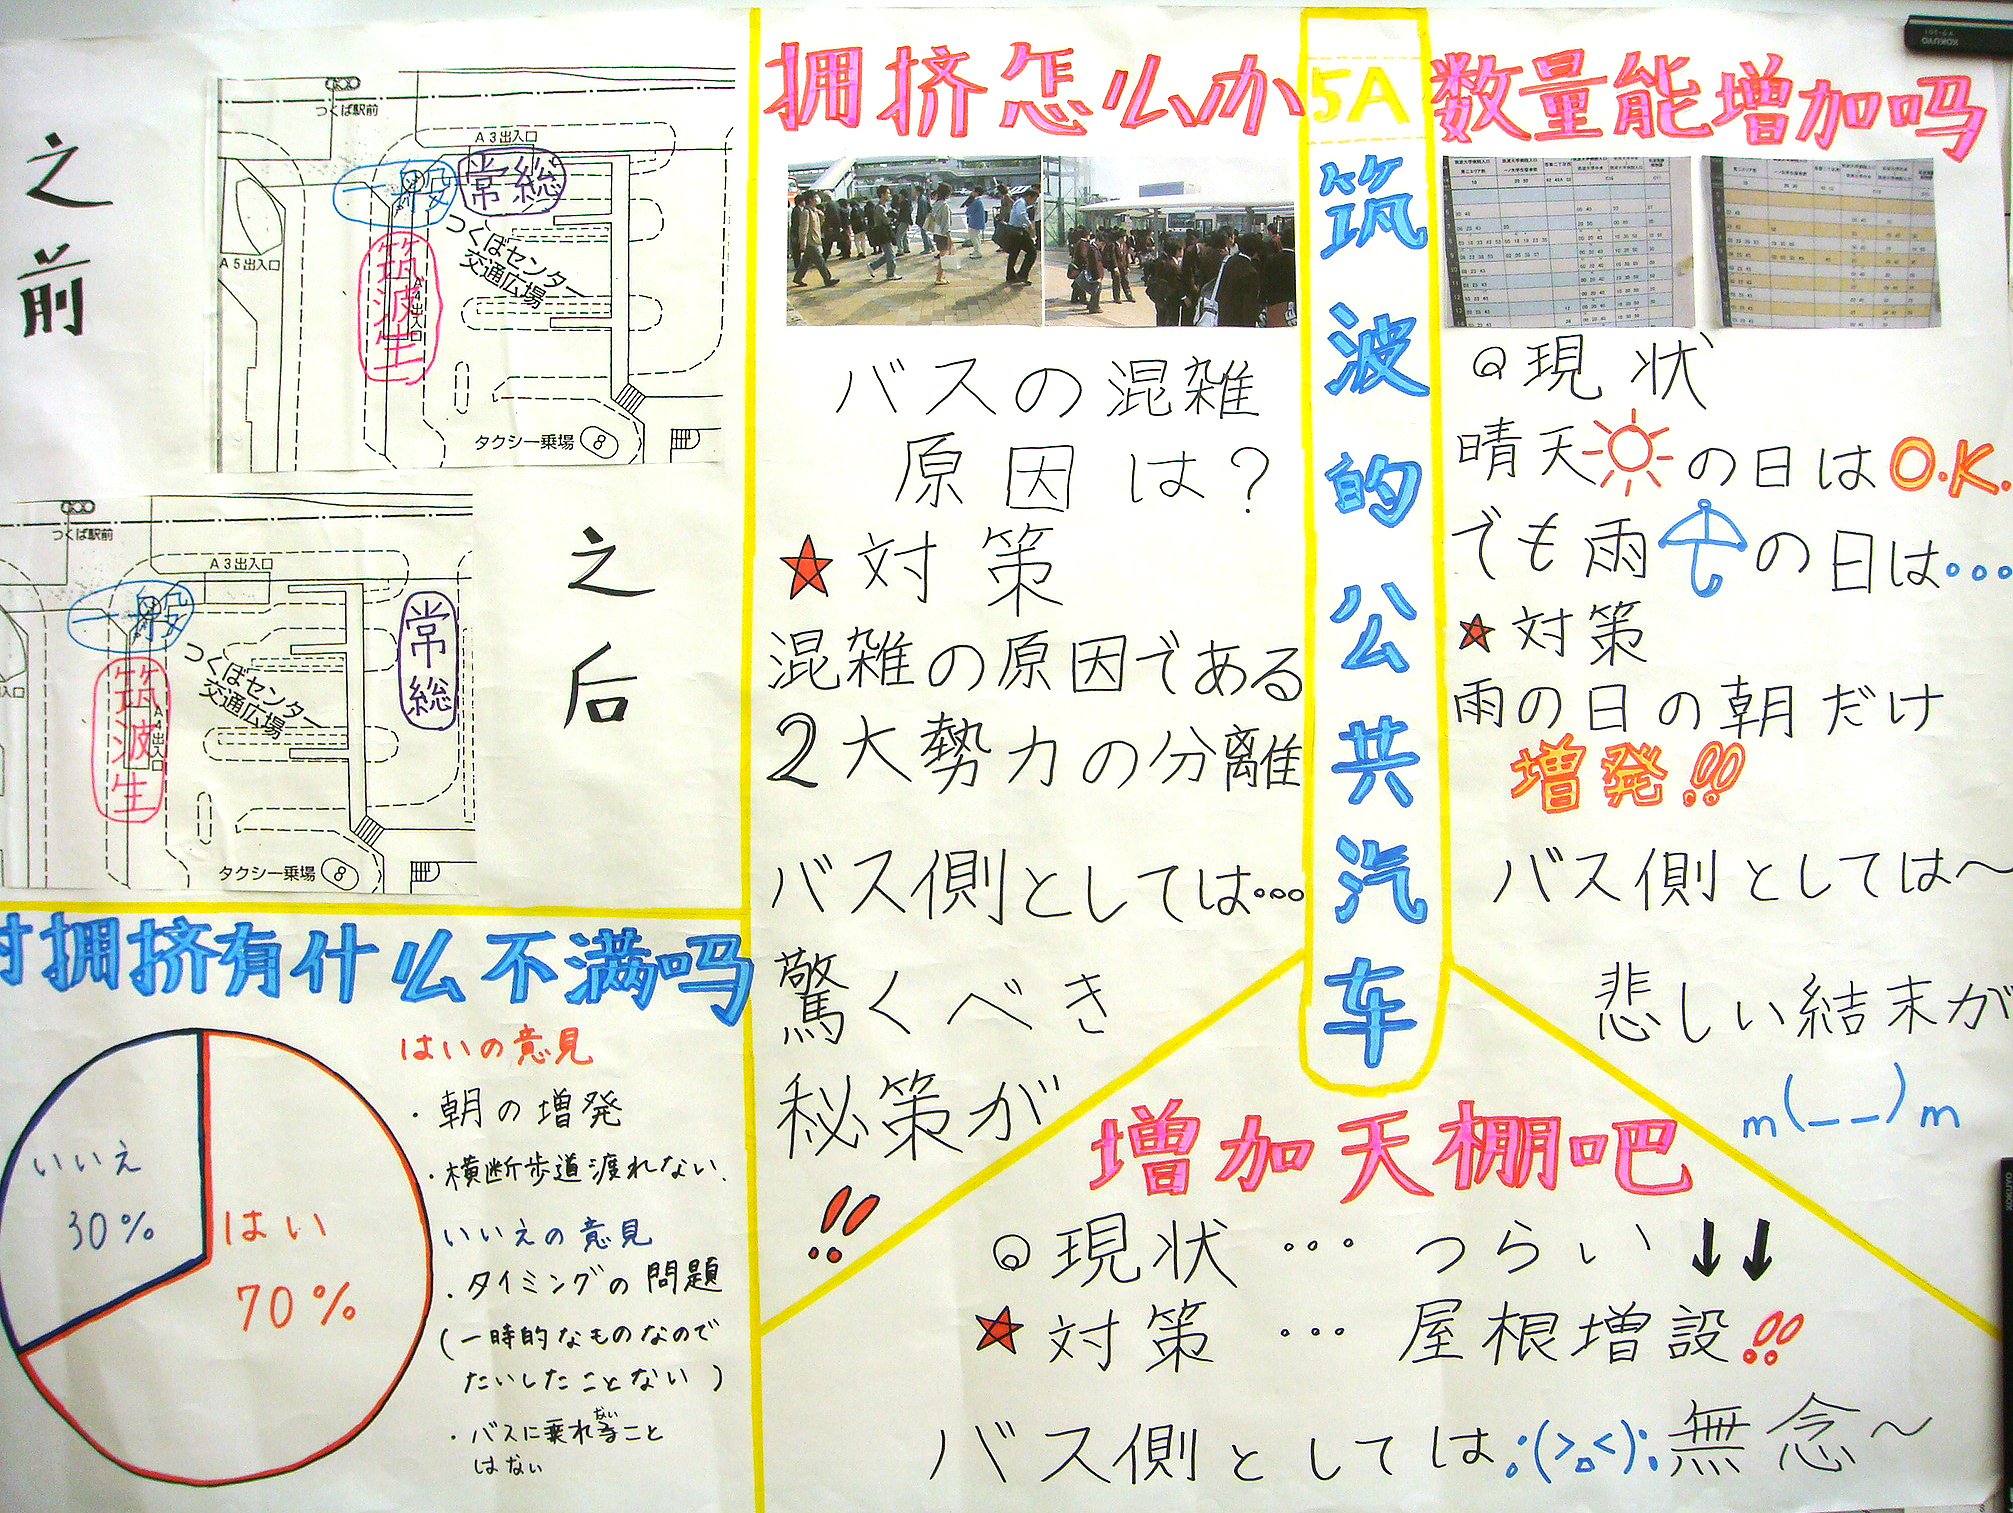 之前
つくば駅前
A3出入口
一般
常総
A5出入口
つくばセンター
交通広場
筑波生
タクシー乗場 8
つくば駅前
A3出入口
一般
常総
つくばセンター
交通広場
筑波生
タクシー乗場 8
之后
対拥挤有什么不满吗
いいえ
30%
はい
70%
はいの意見
・朝の増発
・横断歩道渡れない.
いいえの意見
・タイミングの問題
(一時的なものなので
たいしたことない)
・バスに乗れないこと
はない
拥挤怎么か
バスの混雑
原因は?
★対策
混雑の原因である
2大勢力の分離
バス側としては…
驚くべき
秘策が
!!
5A
筑波的公共汽车
数量能增加吗
◎現状
晴天の日はO.K.
でも雨の日は…
★対策
雨の日の朝だけ
増発!!
バス側としては〜
悲しい結末が
m(__)m
增加天棚吧
◎現状…つらい↓↓
★対策…屋根増設!!
バス側としては:(>_<):無念〜
KOKUYO